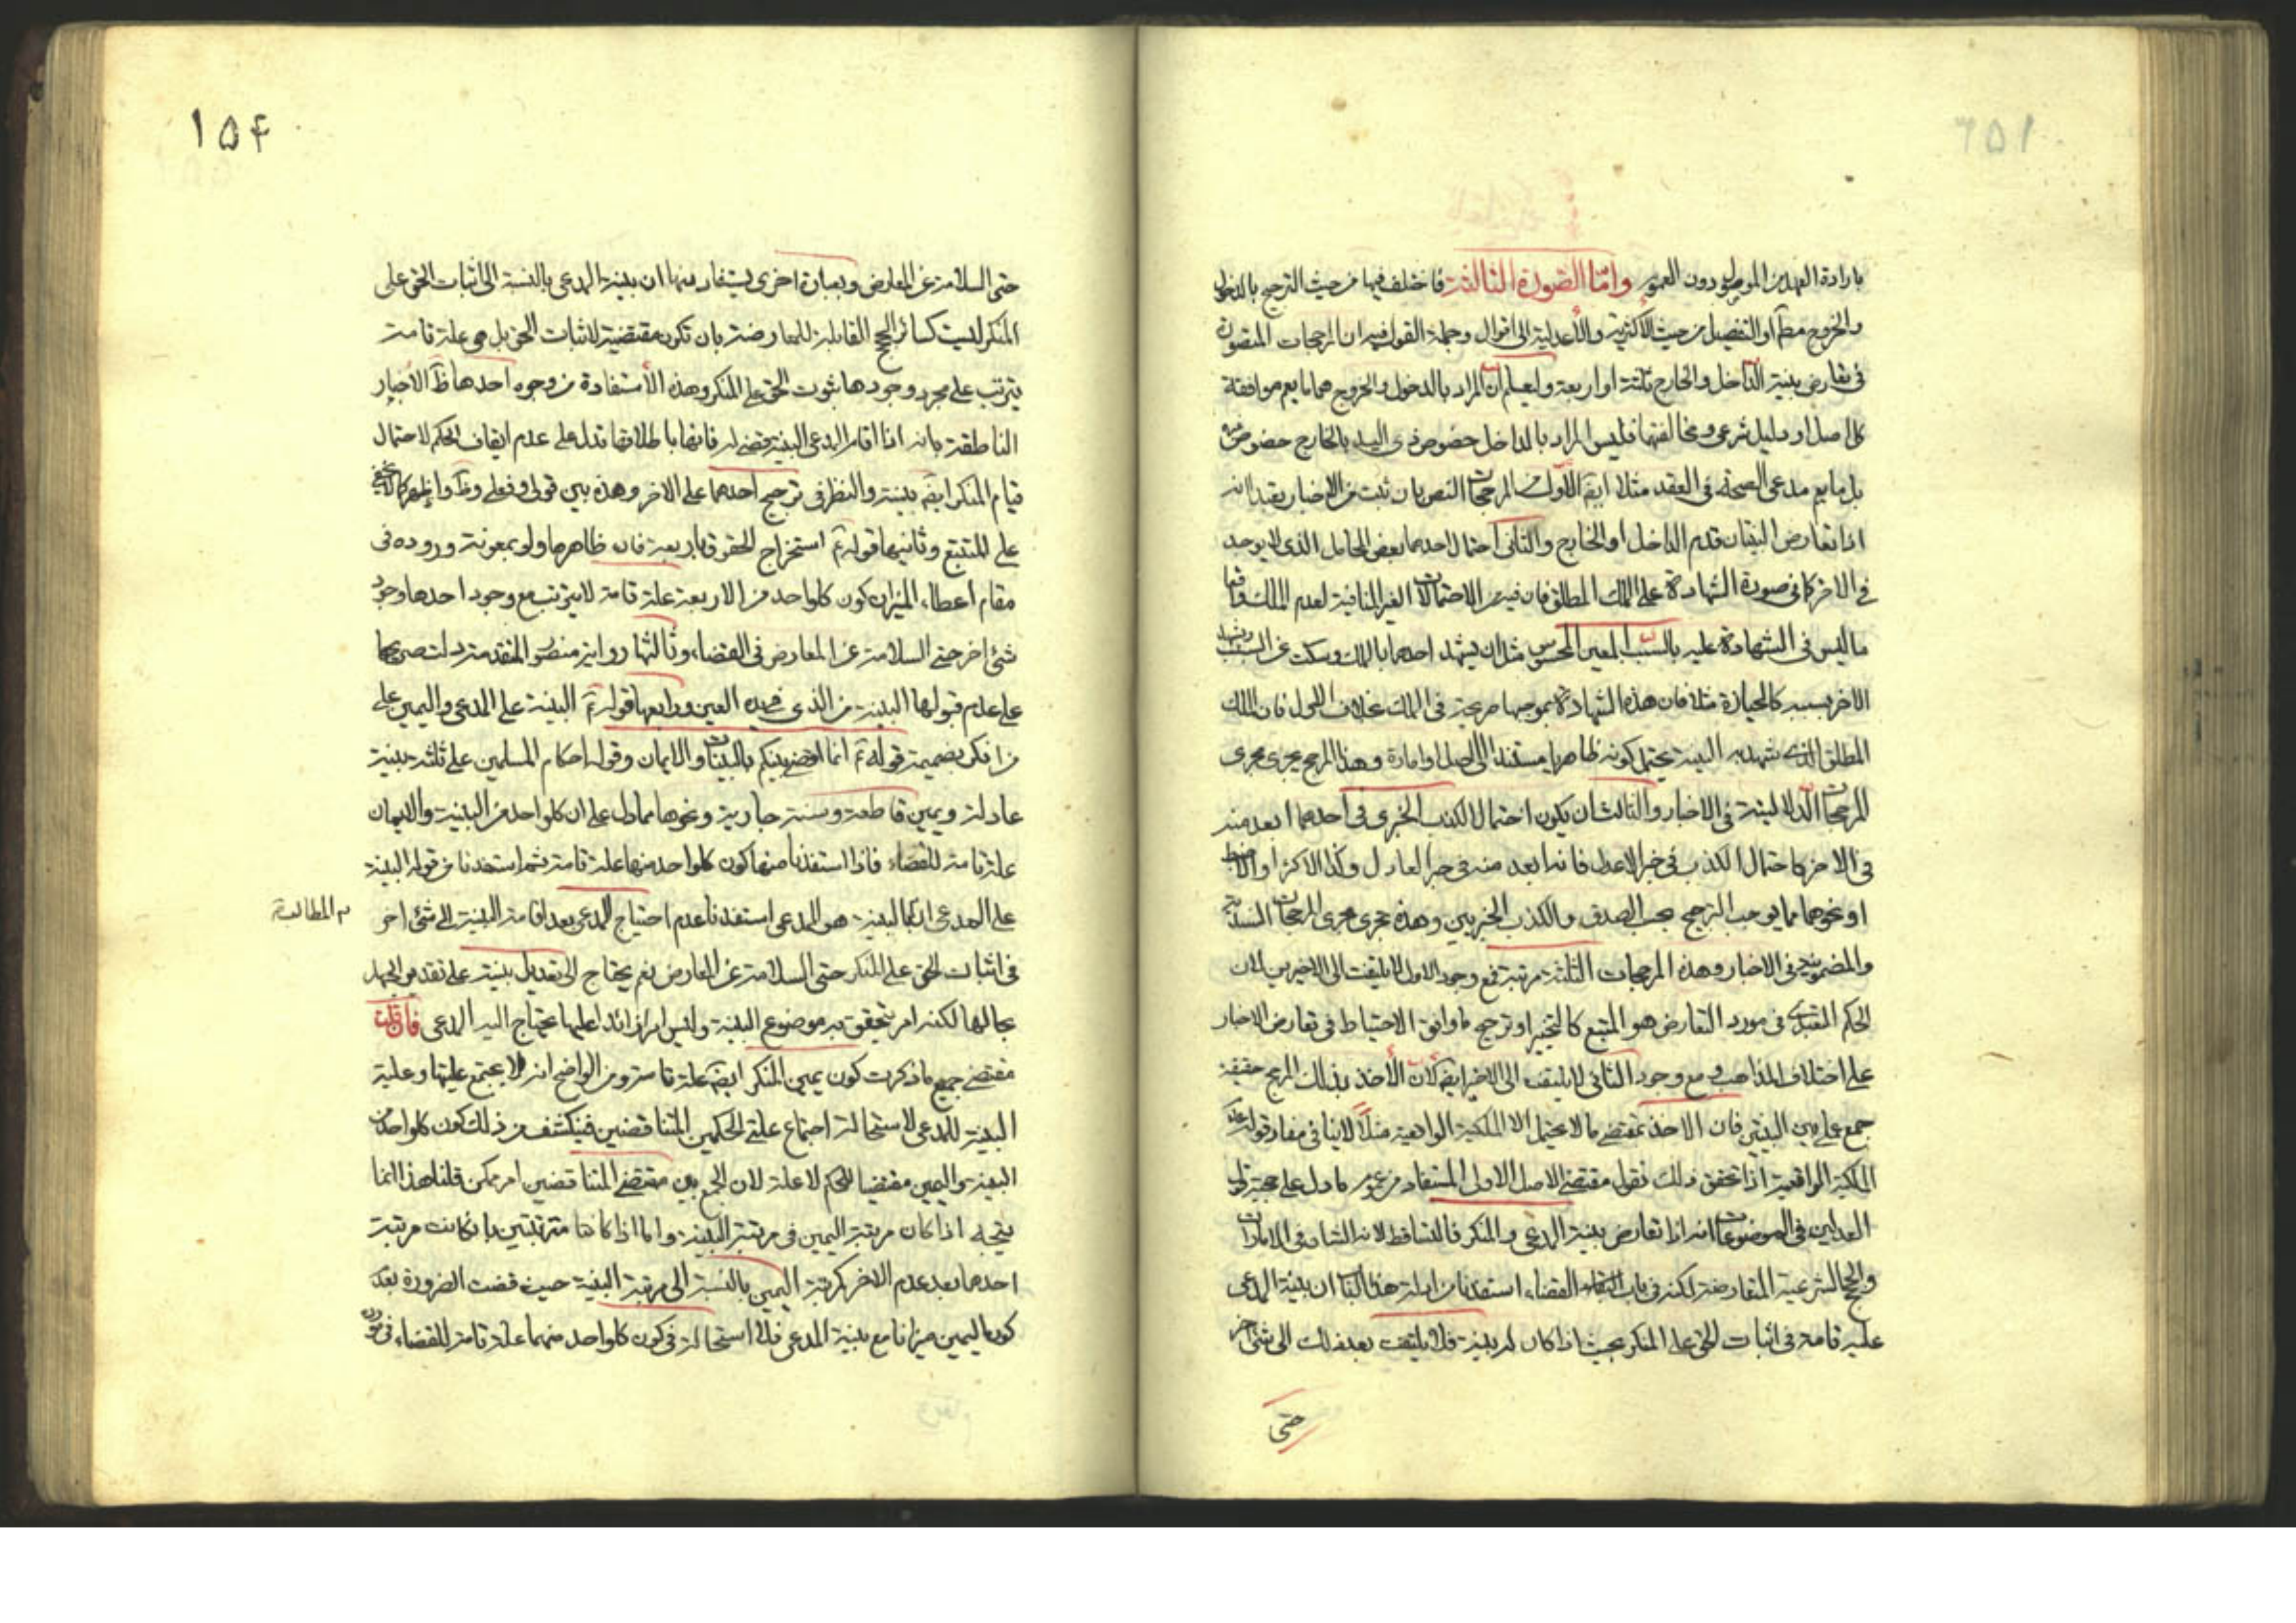 بارادة العهد من الموصول دون العموم وامّا الصّورة الثالثة فاختلف فيها من حيث الترجيح بالدخول
والخروج مطلقا او التفصيل من حيث الأكثرية والأعدلية الى اقوال وجملة القول فيه ان المرجحات المتصورة
فى تعارض بينة الداخل والخارج ثلثة او اربعة وليعلم ان المراد بالدخول والخروج هنا ما يعم موافقة
كل اصل او دليل شرعى ومخالفتها فليس المراد بالداخل خصوص ذى اليد بالخارج خصوص
بل ما يعم مدعى الصحة فى العقد مثلا ايضا الأول من المرجحات النص بان ثبت من الاخبار يفيد انه
اذا تعارض البينتان قدم الداخل او الخارج والثانى احتمال احدهما بعض المحامل الذى لا يوجد
فى الاخر كما فى صورة الشهادة على الملك المطلق فان فيه من الاحتمالات الغير المنافية لعدم الملك واقعا
ما ليس فى الشهادة عليه بالسبب المعين المحسوس مثل ان يشهد احدهما بالملك وسكت عن السبب ويشهد
الاخر بسببه كالحيازة مثلا فان هذه الشهادة بموجبها صريحة فى الملك بخلاف الاول فان الملك
المطلق الذى شهد به البينة يحتمل كونه ظاهريا مستندا الى اصل او امارة وهذا المرجح يجرى مجرى
المرجحات الدلالية فى الاخبار والثالث ان يكون احتمال الكذب الخبرى فى احدهما ابعد منه
فى الاخر كاحتمال الكذب فى خبر الاعدل فانه ابعد منه فى خبر العادل وكذا الاكثر او الاضبط
او نحوهما مما يوجب الترجيح بحسب الصدق والكذب الخبريين وهذه يجرى مجرى المرجحات السندية
والمضمونية فى الاخبار وهذه المرجحات الثلثة مرتبة فمع وجود الاول لا يلتفت الى الاخيرين لان
الحكم التعبدى فى مورد التعارض هو المتبع كالتخيير او ترجيح ما وافق الاحتياط فى تعارض الاخبار
على اختلاف المذاهب ومع وجود الثانى لا يلتفت الى الاخير ايضا لان الأخذ بذلك المرجح حقيقة
جمع على بين البينتين فان الاخذ بمقتضى ما لا يحتمل الا الملكية الواقعية مثلا لا ينافى مفاد قول
الملكية الواقعية اذا تحقق ذلك نقول مقتضى الاصل الاولى المستفاد من عموم ما دل على حجية قول
العدلين فى الموضوعات انه اذا تعارض بينة المدعى والمنكر فالتساقط لانه الشان فى الامارات
والحجج الشرعية المتعارضة لكنه فى باب القضاء استفدنا من ادلة هذا الباب ان بينة المدعى
علة تامة فى اثبات الحق على المنكر بحيث اذا كان له بينة فلا يلتفت بعد ذلك الى شئ اخر
حتى
۱۵۴
حتى السلامة عن المعارض وبعبارة اخرى يستفاد منها ان بينة المدعى بالنسبة الى اثبات الحق على
المنكر ليست كسائر الحجج القابلة للمعارضة بان تكون مقتضية لاثبات الحق بل هى علة تامة
يترتب على مجرد وجودها ثبوت الحق على المنكر وهذه الأستفادة من وجوه احدها ظاهر الأخبار
الناطقة بانه اذا اقام المدعى البينة يقضى له فانها باطلاقها تدل على عدم ايقاف الحكم لاحتمال
قيام المنكر ايضا بينة والنظر فى ترجيح احدهما على الاخر وهذه بين قولى وفعلى وظاهر واظهر كما لا يخفى
على المتتبع وثانيها قوله استخراج الحقوق باربعة فان ظاهرها ولو بمعونة وروده فى
مقام اعطاء الميزان كون كل واحد من الاربعة علة تامة لا يترتب مع وجود احدها وجود
شئ اخر حتى السلامة عن المعارض فى القضاء وثالثها رواية منصور المتقدمة دلت صريحا
على عدم قبولها البينة من الذى فى يده العين ورابعها قوله البينة على المدعى واليمين على
من انكر بضميمة قوله انما اقضى بينكم بالبينات والايمان وقوله احكام المسلمين على ثلثة بينة
عادلة ويمين قاطعة وسنة جارية ونحوها مما دل على ان كل واحد من البينة والايمان
علة تامة للقضاء فاذا استفدنا منها كون كل واحد منها علة تامة ثم استفدنا من قوله البينة
على المدعى ان البينة هو المدعى استفدنا عدم احتياج المدعى بعد اقامة البينة الى شئ اخر
م المطالبة
فى اثبات الحق على المنكر حتى السلامة عن المعارض نعم يحتاج الى تعديل بينته على تقدير الجهل
بحالها لكنه امر يتحقق به موضوع البينة وليس امرا زائدا عليها يحتاج اليه المدعى فان قلت
مقتضى جميع ما ذكرت كون يمين المنكر ايضا علة تامة ومن الواضح انه لا يجتمع عليتها وعلية
البينة للمدعى لاستحالة اجتماع علتى الحكمين المتناقضين فينكشف من ذلك كون كل واحد من
البينة واليمين مقتضيا للحكم لا علة لان الجمع بين مقتضى المتناقضين امر ممكن قلنا هذا انما
يتجه اذا كان مرتبة اليمين فى مرتبة البينة واما اذا كانتا مترتبتين بان كانت مرتبة
احدهما بعد عدم الاخر كمرتبة اليمين بالنسبة الى مرتبة البينة حيث قضت الضرورة بعدم
كون اليمين ميزانا مع بينة المدعى فلا استحالة فى كون كل واحد منهما علة تامة للقضاء فى